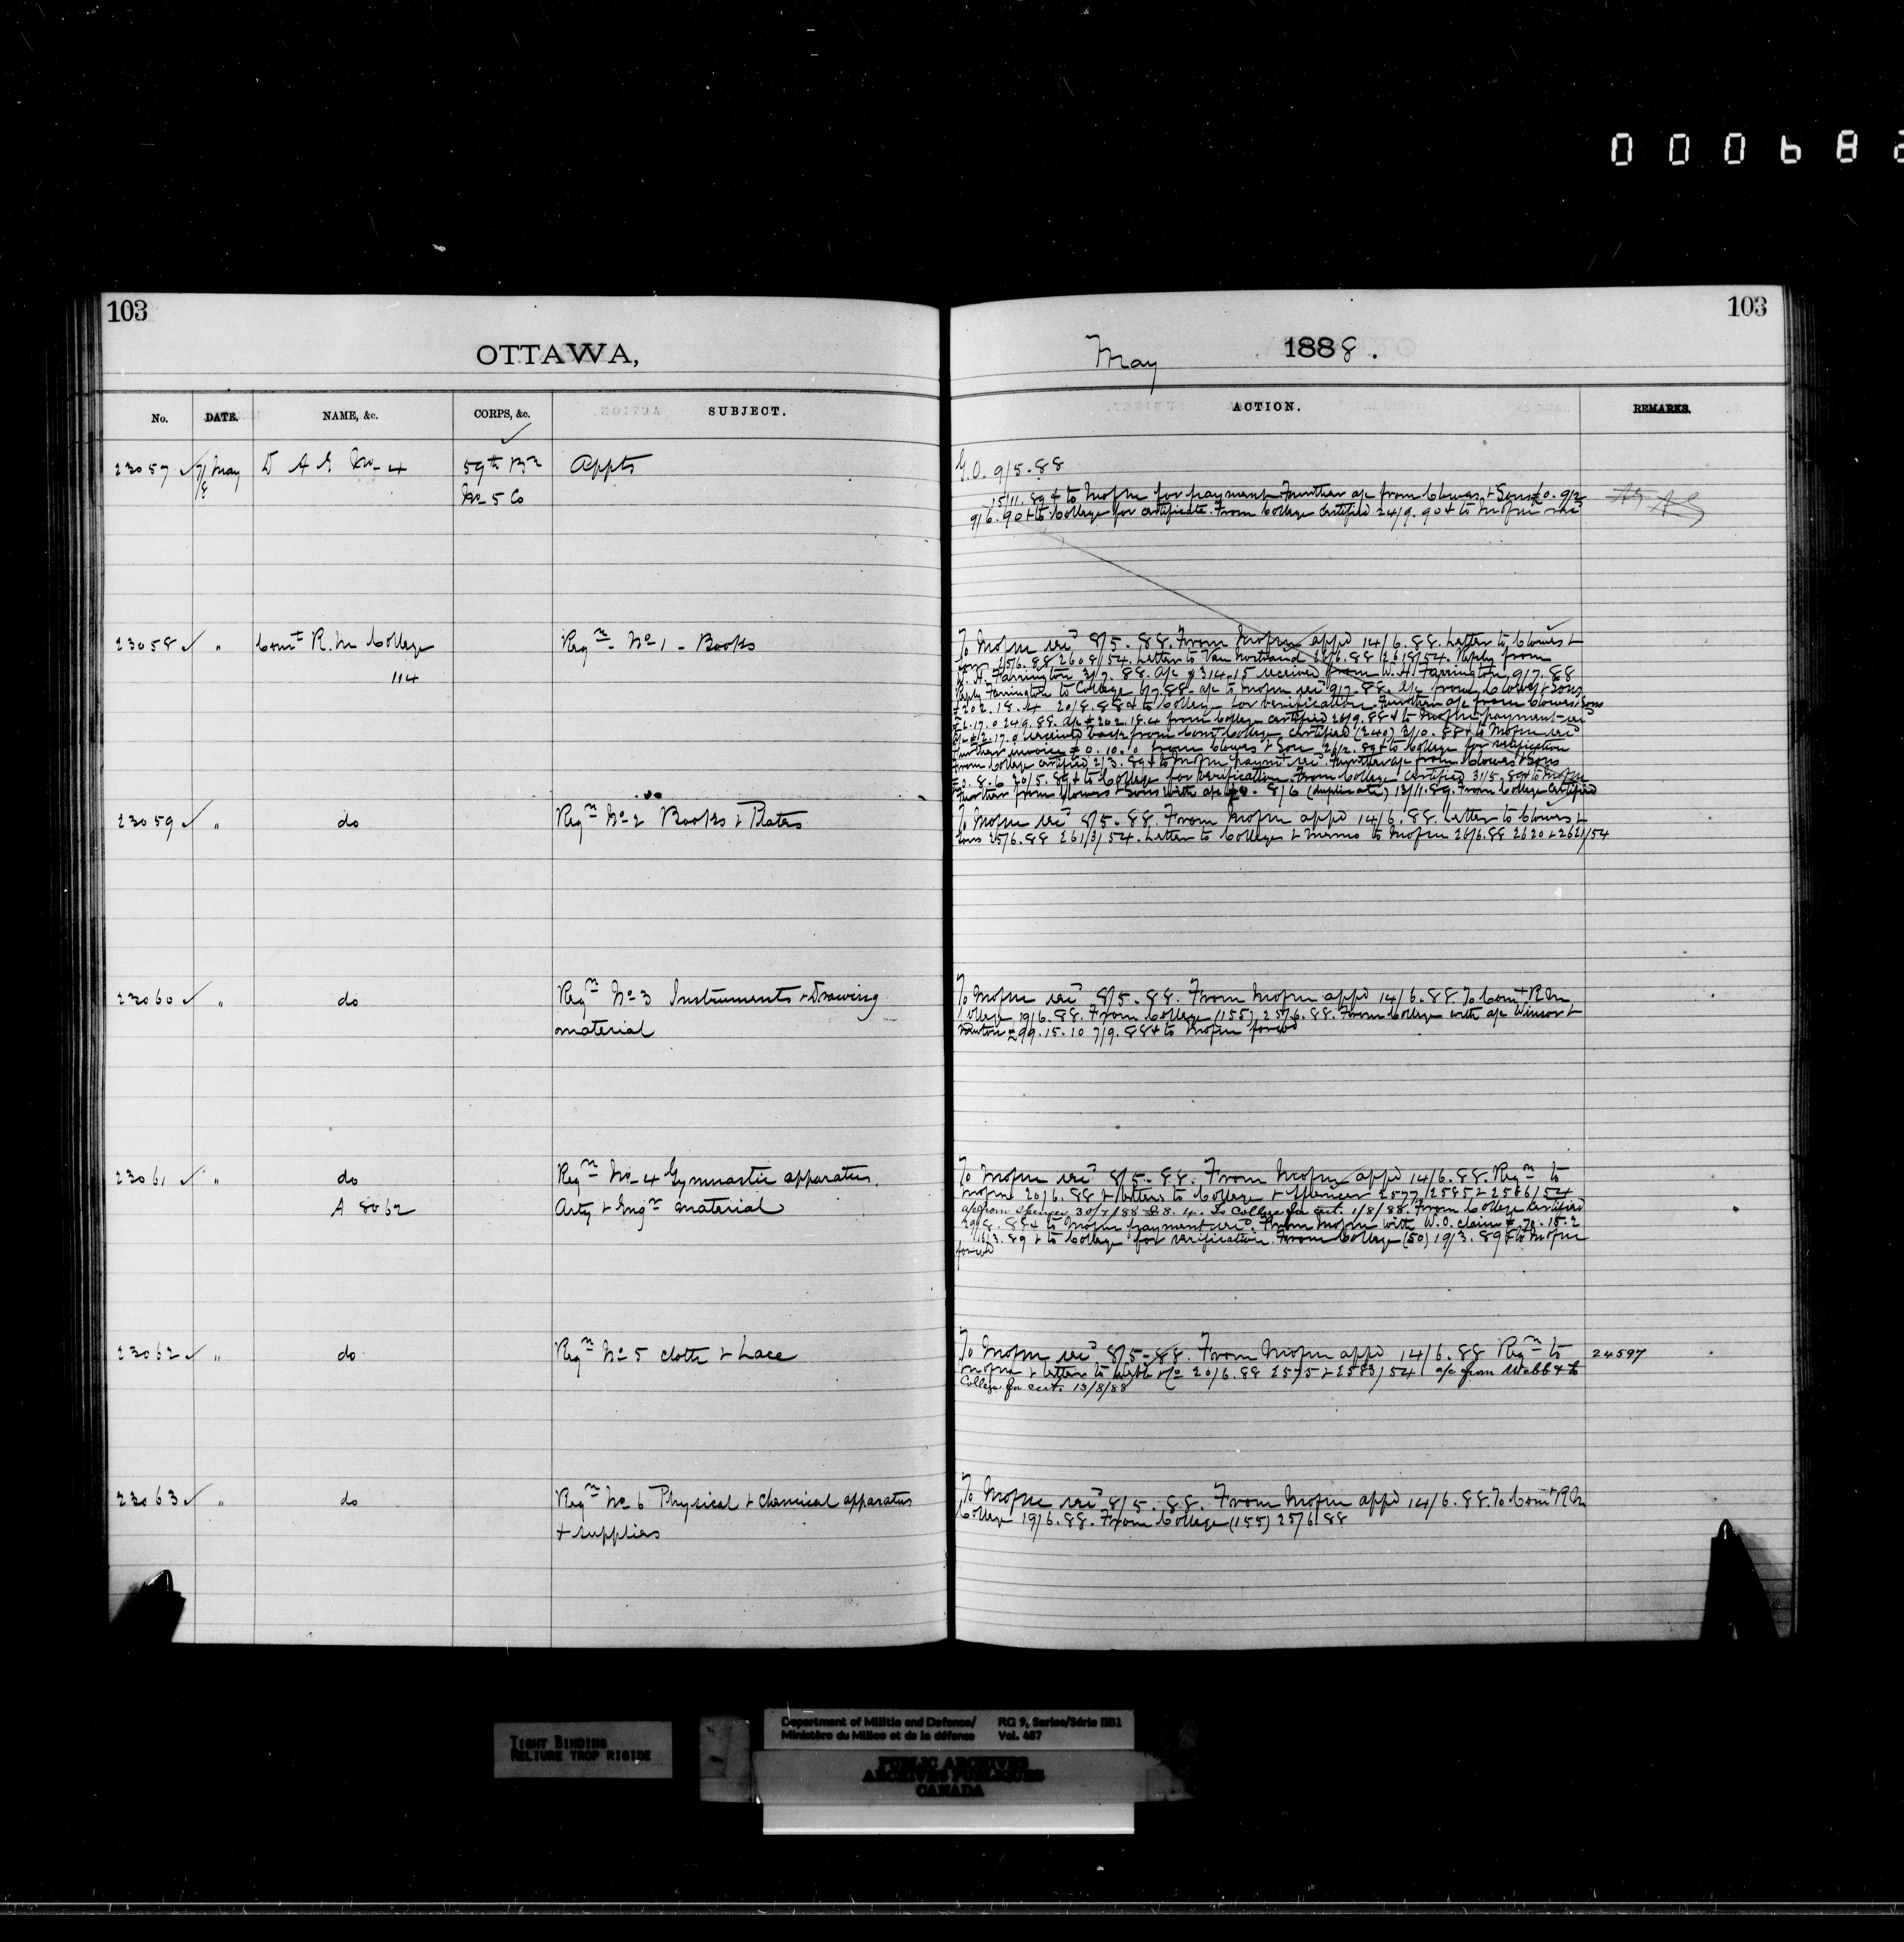 000682
103
103
OTTAWA,
May 1888.
No. DATE. NAME, &c. CORPS, &c. SUBJECT. ACTION. REMARKS.
23057 7/8 May D A G No 4 59th Bn Appts
No 5 Co
G.O. 9/5.88
15/11.89 & to Mofm for payment Further a/c from Clowes & Sons £0.9/2
9/6.90 & to College for certificate. From College certified 24/9.90 & to Mofm rec'd
23058 " Comt R. M College Reqn No 1 - Books
114
To Mofm rec'd 8/5.88. From Mofm appd 14/6.88. Letter to Clowes &
Sons 25/6.88 2608/54. Letter to Van Nostrand 26/6.88 2618/54. Reply from
W. H. Farrington 3/7.88. a/c $314.15 received from W. H. Farrington 9/7.88
Reply Farrington to College 6/7.88. a/c to Mofm rec'd 9/7.88. a/c from Clowes & Sons
£202.18.4 20/8.88 & to College for verification. Further a/c from Clowes & Sons
£2.17.0 24/9.88. a/c £202.18.4 from College certified 26/9.88 & to Mofm payment rec'd
a/c £2.17.0 received back from Comt College certified (240) 2/10.88 & to Mofm rec'd
Further invoice £0.10.0 from Clowes & Son 26/2.89 & to College for verification
From College certified 2/3.89 & to Mofm paymt rec'd. Further a/c from Clowes & Sons
£0.8.6 20/5.89 & to College for verification. From College certified 31/5.89 & to Mofm
Further from Clowes & Sons with a/c £0.8/6 (duplicate) 13/11.89. From College certified
23059 " do Reqn No 2 Books & Plates
To Mofm rec'd 8/5.88. From Mofm appd 14/6.88. Letter to Clowes &
Sons 25/6.88 2613/54. Letter to College & memo to Mofm 26/6.88 2620 & 2621/54
23060 " do Reqn No 3 Instruments & Drawing
material
To Mofm rec'd 8/5.88. From Mofm appd 14/6.88. To Comt R M
College 19/6.88. From College (155) 25/6.88. From College with a/c Winsor &
Newton £99.15.10 7/9.88 & to Mofm forwd
23061 " do Reqn No 4 Gymnastic apparatus,
A 8062 Arty & Engr material
To Mofm rec'd 8/5.88. From Mofm appd 14/6.88. Reqn to
Mofm 20/6.88 & letters to College & Spencer 2577/2585 & 2586/54
a/c from Spencer 30/7/88 £8.4. To College for cert. 1/8/88. From College certified
29/8.88 & to Mofm payment rec'd. From Mofm with W.O. claim £70.15.2
16/3.89 & to College for verification. From College (50) 19/3.89 & to Mofm
forwd
23062 " do Reqn No 5 cloth & Lace
To Mofm rec'd 8/5.88. From Mofm appd 14/6.88 Reqn to 24597
Mofm & letter to Webb & Co 20/6.88 2575 & 2583/54 a/c from Webb & to
College for cert. 13/8/88
23063 " do Reqn No 6 Physical & Chemical apparatus
& supplies
To Mofm rec'd 8/5.88. From Mofm appd 14/6.88. To Comt R M
College 19/6.88. From College (155) 25/6.88
TIGHT BINDING
RELIURE TROP RIGIDE
Department of Militia and Defence/ RG 9, Series/Série IIB1
Ministère du Milice et de la défence Vol. 487
PUBLIC ARCHIVES
ARCHIVES PUBLIQUES
CANADA